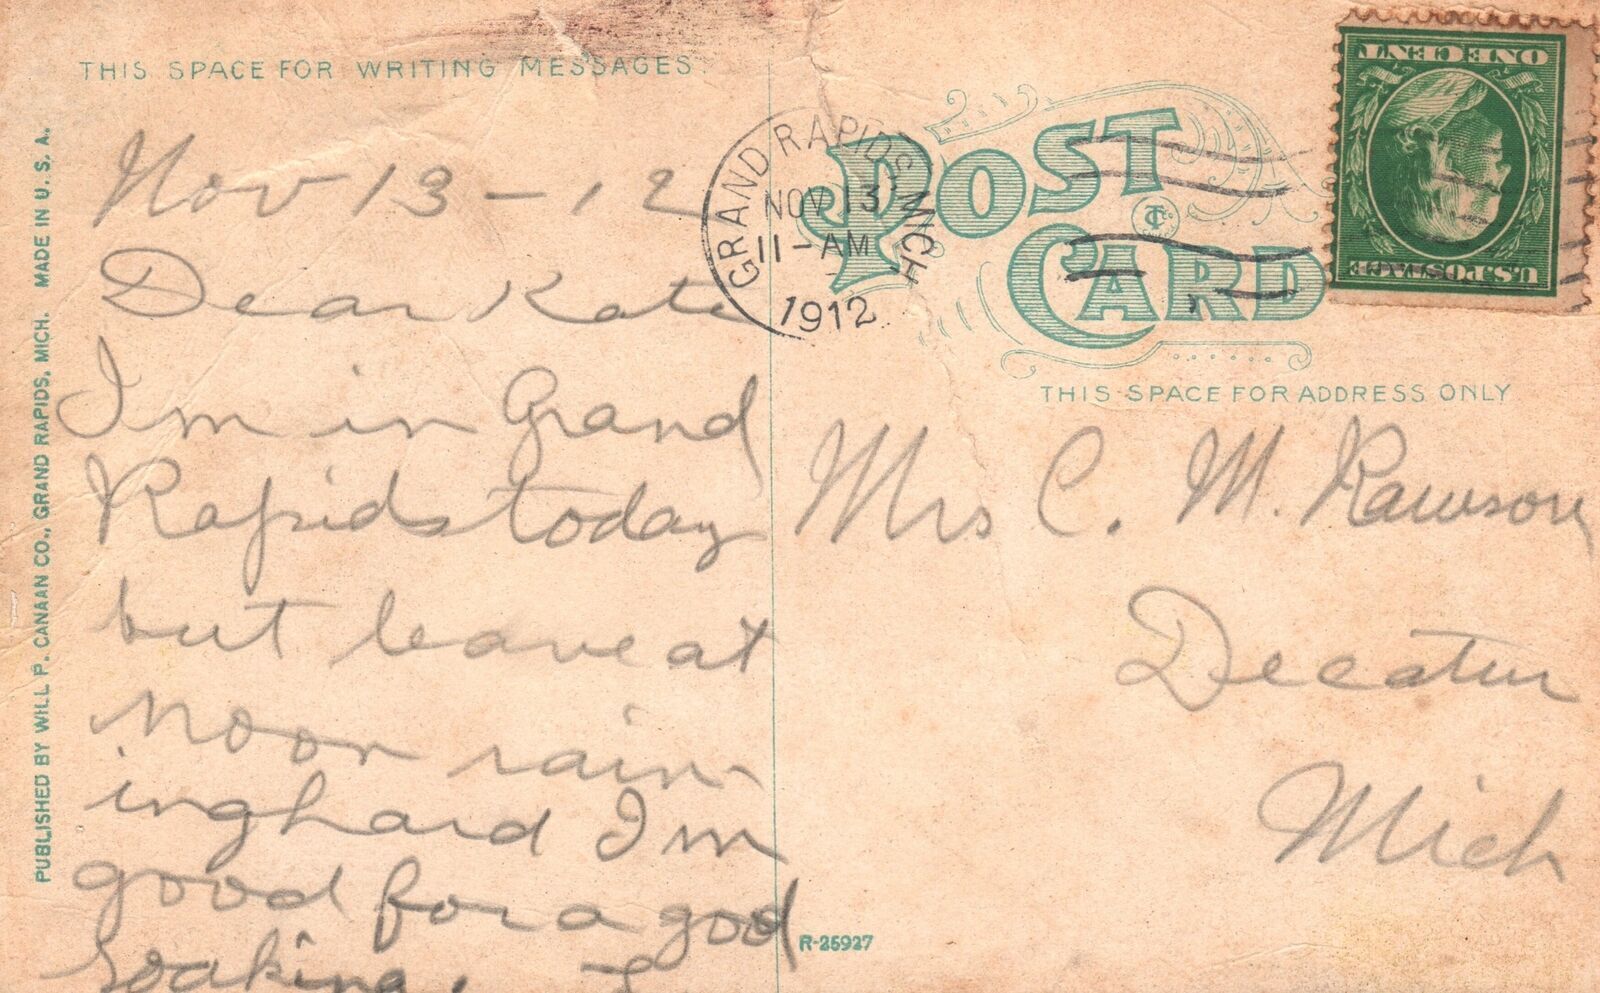 THIS SPACE FOR WRITING MESSAGES.
Nov 13 - 12
Dear Kate
I'm in Grand
Rapids today
but leave at
noon rain-
ing hard I'm
good for a good
soaking.
PUBLISHED BY WILL P. CANAAN CO., GRAND RAPIDS, MICH. MADE IN U. S. A.
GRAND RAPIDS, MICH.
NOV 13
11-AM
1912
POST
CARD
THIS SPACE FOR ADDRESS ONLY
Mrs C. M. Rawson
Decatur
Mich
R-25927
U.S. POSTAGE
ONE CENT